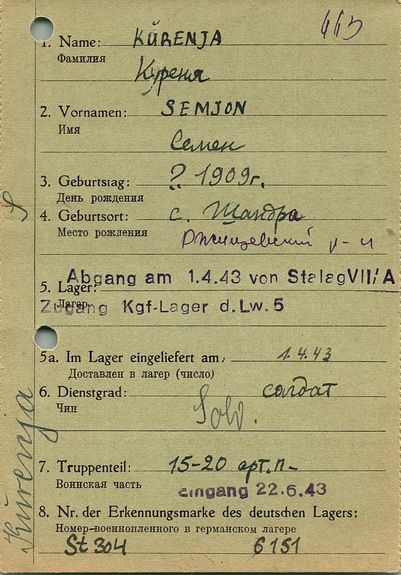 443
1. Name: KÜRENJA
Фамилия
Куреня
2. Vornamen: SEMJON
Имя
Семен
3. Geburtstag: ? 1909г.
День рождения
4. Geburtsort: с. Шандра
Место рождения
Ржищевский р-н
5. Lager:
Лагерь
Abgang am 1.4.43 von Stalag VII/A
Zugang Kgf-Lager d.Lw.5
5a. Im Lager eingeliefert am: 1.4.43
Доставлен в лагер (число)
6. Dienstgrad: солдат
Чин
Sold.
7. Truppenteil: 15-20 арт.п-
Воинская часть
Eingang 22.6.43
8. Nr. der Erkennungsmarke des deutschen Lagers:
Номер-военнопленного в германском лагере
St 304 6151
S
Kürenja